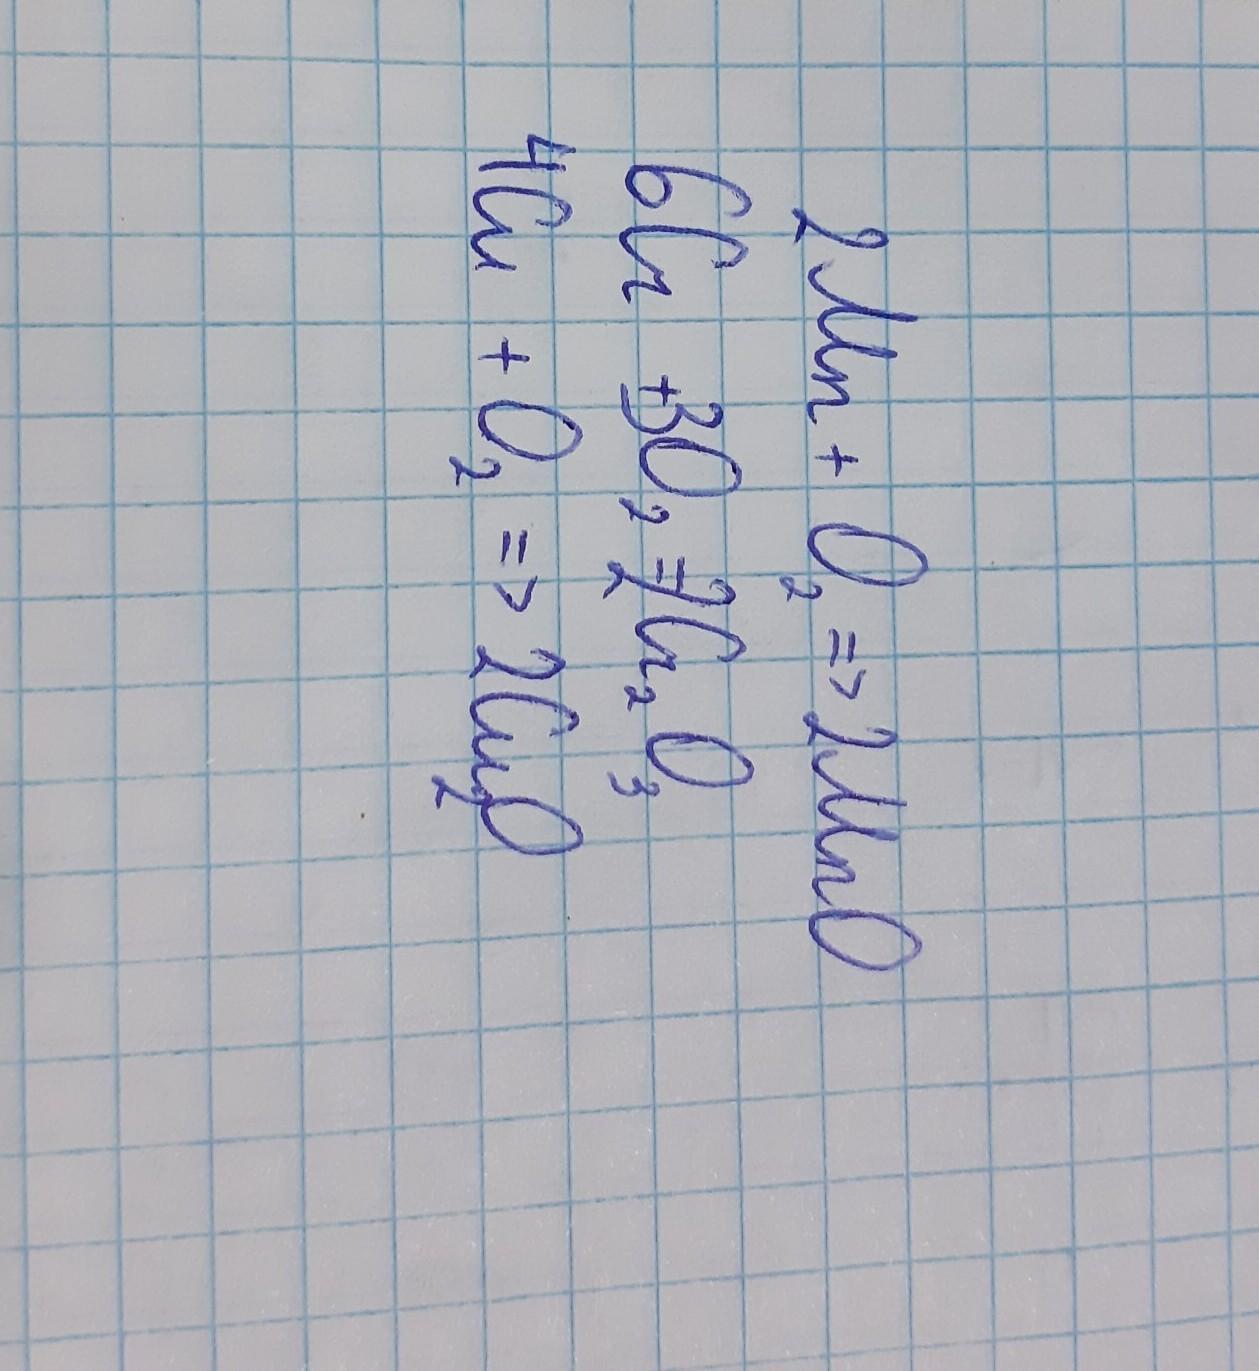 2Mn + O₂ => 2MnO
6Cr + 3O₂ => 2Cr₂O₃
4Cu + O₂ => 2Cu₂O